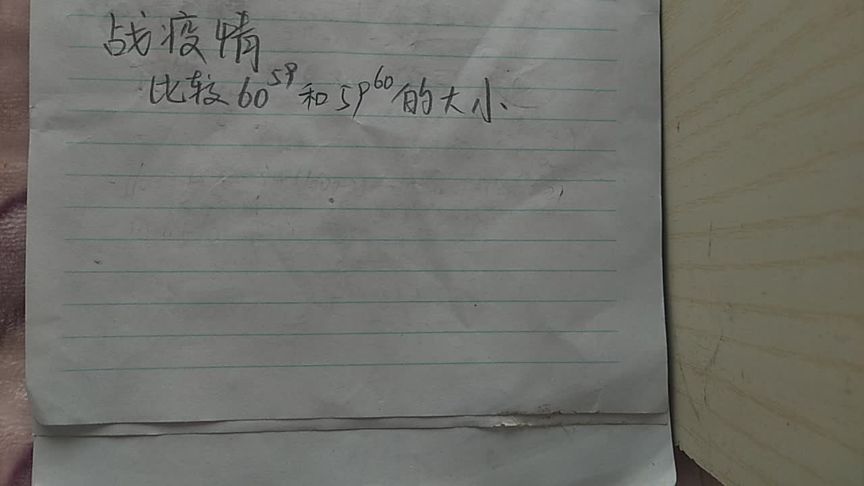 战疫情
比较60^59和59^60的大小、